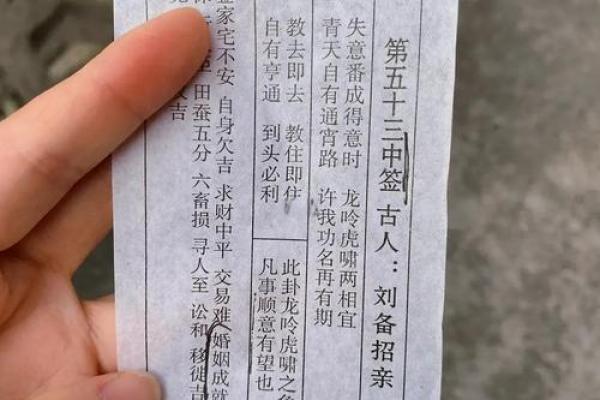 第五十三中签 古人：刘备招亲
失意番成得意时 龙呤虎啸两相宜
青天自有通宵路 许我功名再有期
教去即去 教住即住
自有亨通 到头必利
此卦龙呤虎啸之
凡事顺意有望也
家宅不安 自身欠吉 求财中平 交易难 婚姻成就
田蚕五分 六畜损 寻人至 讼和 移徙吉
吉